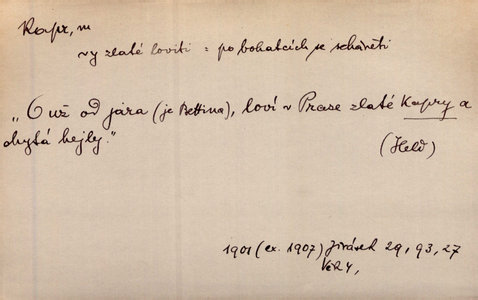 Kapr, m
~y zlaté loviti = po bohatcích se sháněti
„O už od jara (je Bettina), loví v Praze zlaté Kapry a
chytá hejly."
(Held)
1901 (ex. 1907) Jirásek 29, 93, 27